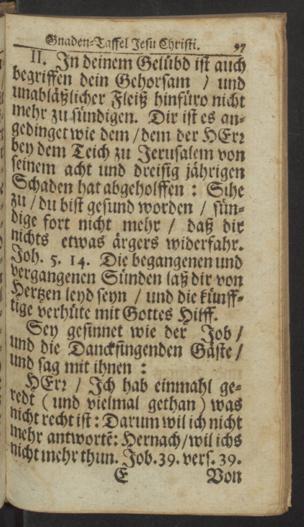 Gnaden-Taffel Jesu Christi. 97
II. In deinem Gelübd ist auch
begriffen dein Gehorsam / und
unabläßlicher Fleiß hinfüro nicht
mehr zu sündigen. Dir ist es an-
gedinget wie dem / dem der HErꝛ
bey dem Teich zu Jerusalem von
seinem acht und dreisig jährigen
Schaden hat abgeholffen : Sihe
zu / du bist gesund worden / sün-
dige fort nicht mehr / daß dir
nichts etwas ärgers widerfahr.
Joh. 5. 14. Die begangenen und
vergangenen Sünden laß dir von
Hertzen leyd seyn / und die künff-
tige verhüte mit Gottes Hilff.
Sey gesinnet wie der Job /
und die Danckfingenden Gäste /
und sag mit ihnen :
HErꝛ / Ich hab einmahl ge-
redt ( und vielmal gethan ) was
nicht recht ist : Darum wil ich nicht
mehr antwortẽ: Hernach / wil ichs
nicht mehr thun. Job. 39. vers. 39.
E Von